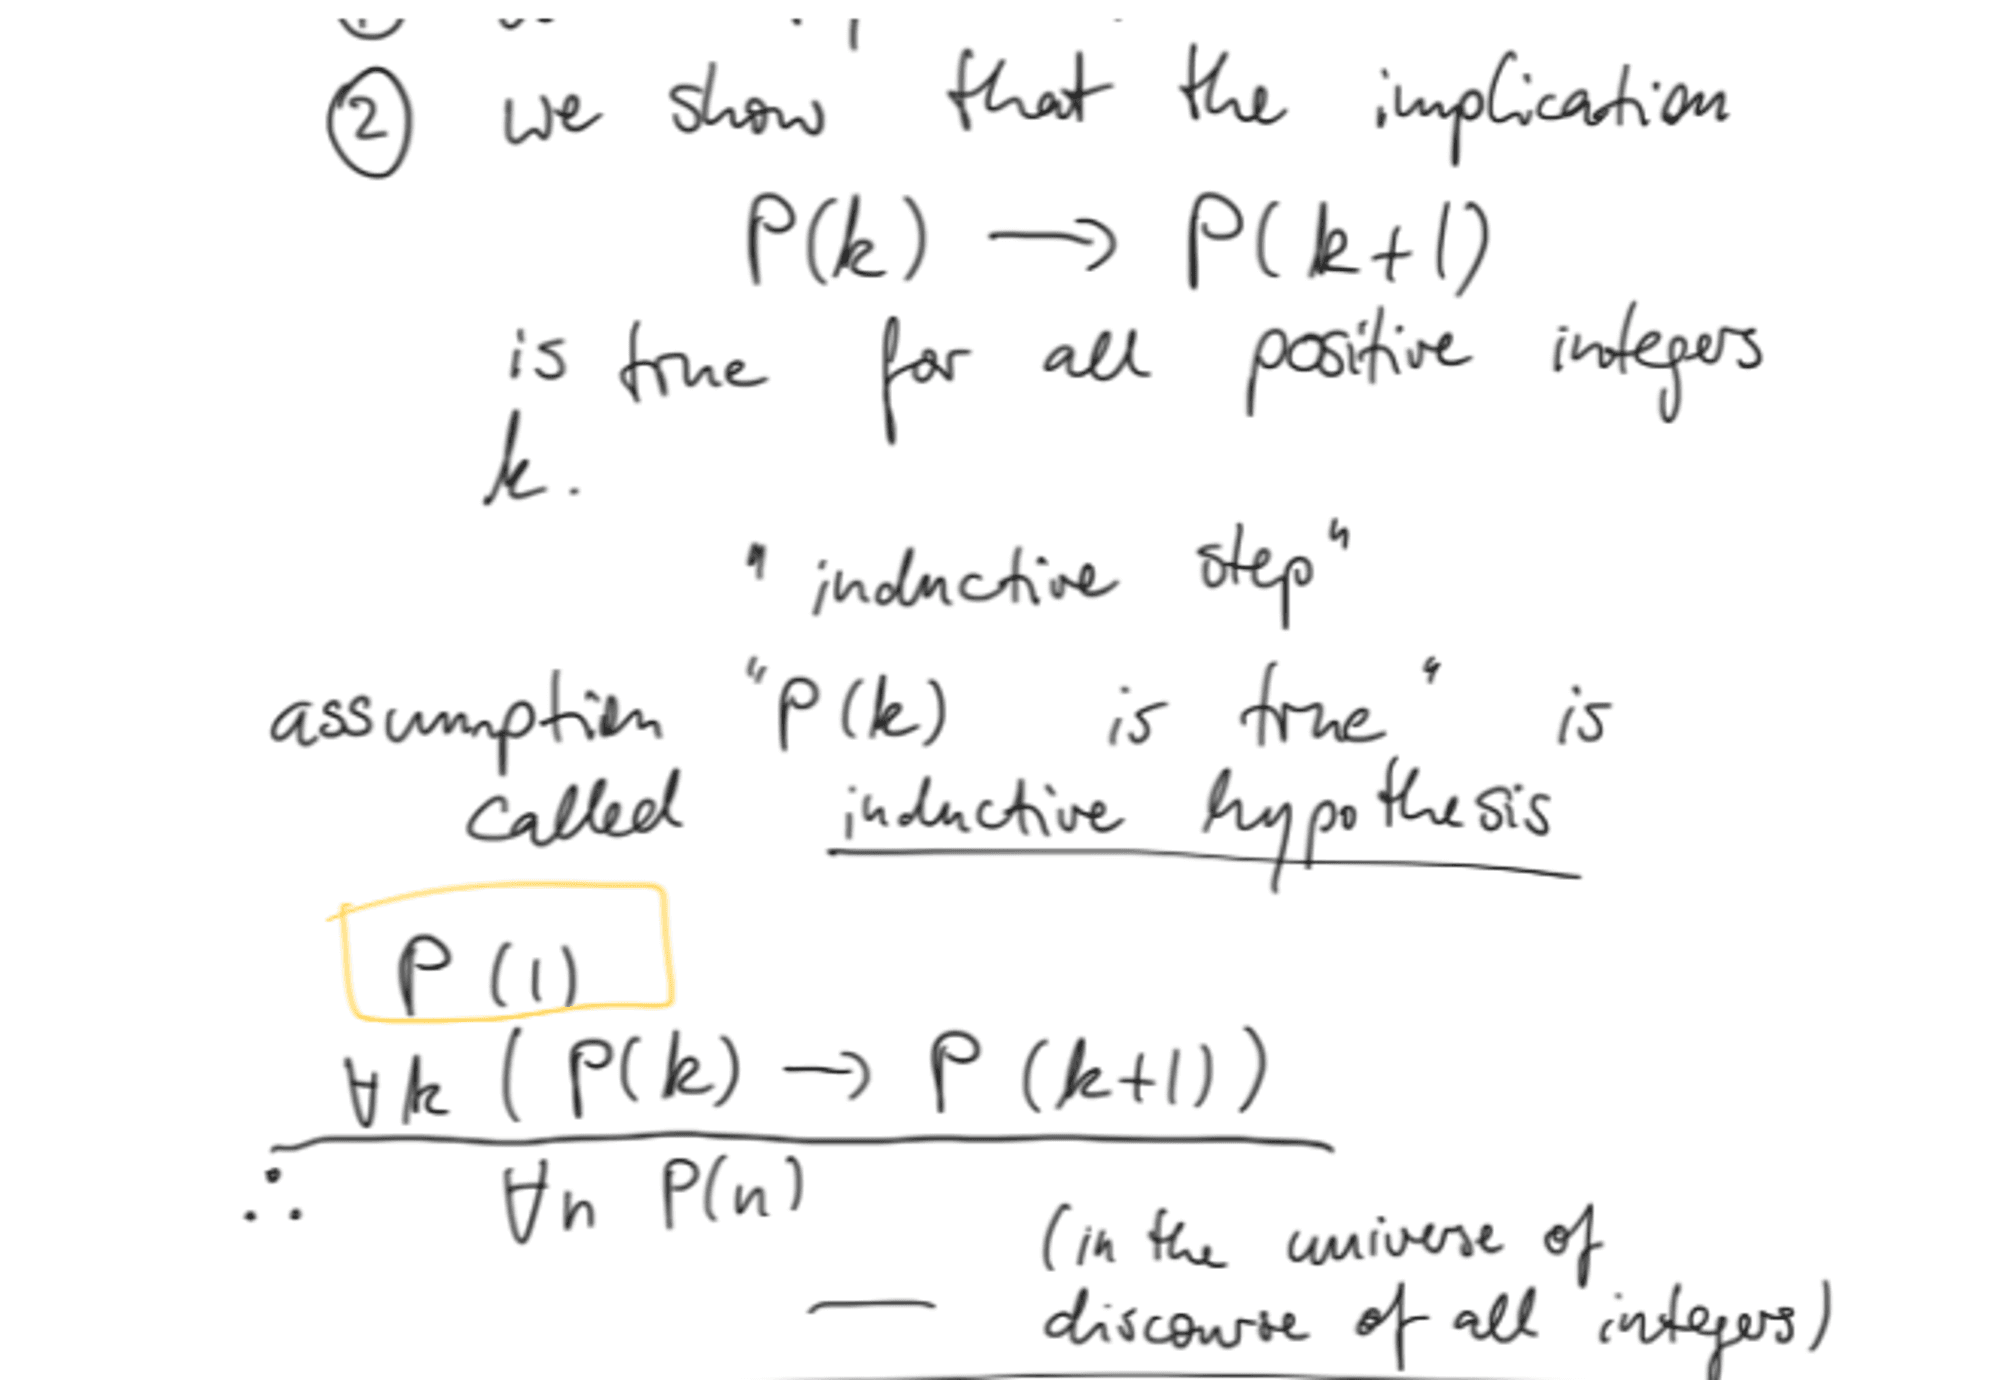 ② we show that the implication
P(k) → P(k+1)
is true for all positive integers
k.
"inductive step"
assumption "P(k) is true" is
called inductive hypothesis
P(1)
∀k (P(k) → P(k+1))
∴ ∀n P(n)
(in the universe of
— discourse of all integers)